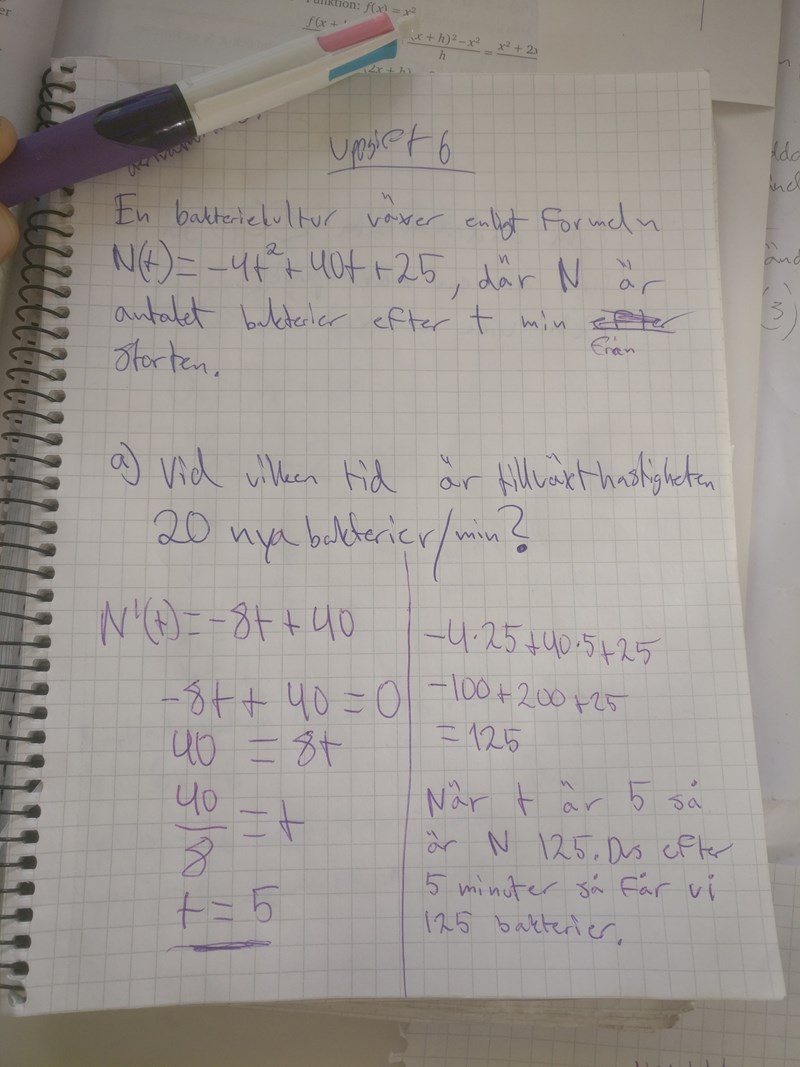 funktion: f(x) = x²
(x + h)² − x²
h
= x² + 2x
uppgift 6
En bakteriekultur växer enligt formeln
N(t) = -4t² + 40t + 25, där N är
antalet bakterier efter t min
från
starten.
a) Vid vilken tid är tillväxthastigheten
20 nya bakterier/min?
N'(t) = -8t + 40
-8t + 40 = 0
40 = 8t
40/8 = t
t = 5
-4·25+40·5+25
-100+200+25
= 125
När t är 5 så
är N 125. Dvs efter
5 minuter så får vi
125 bakterier.